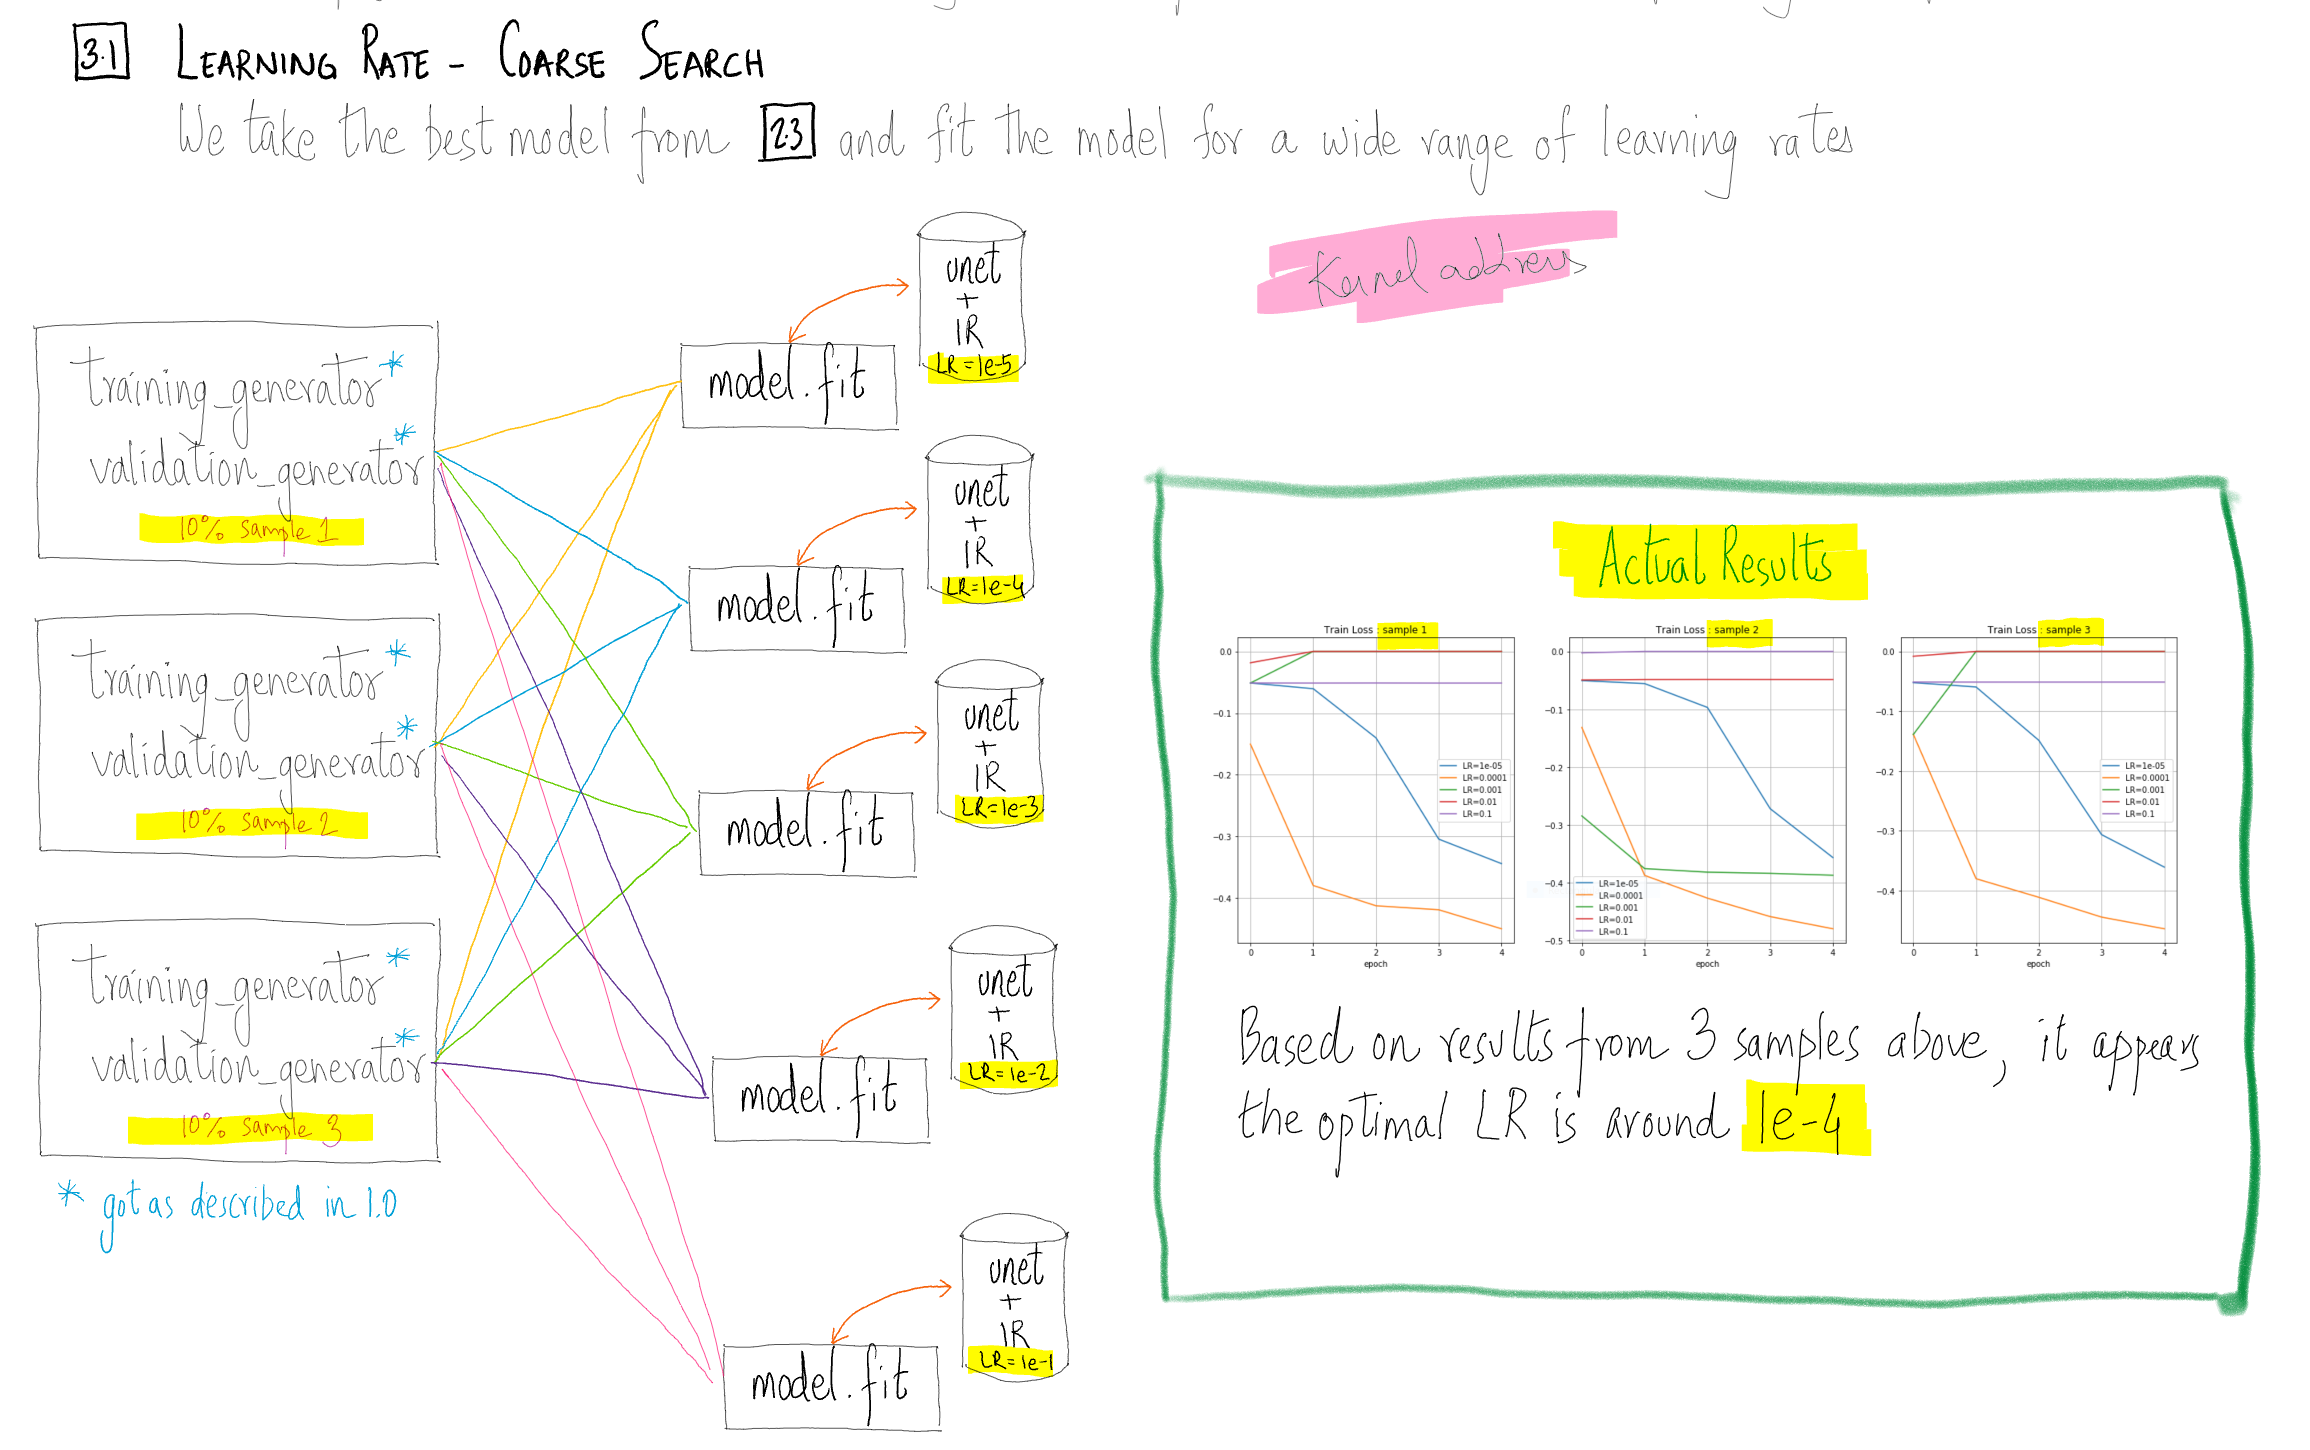 3.1 LEARNING RATE - COARSE SEARCH
We take the best model from 2.3 and fit the model for a wide range of learning rates
Kernel address
training_generator*
validation_generator*
10% sample 1
training_generator*
validation_generator*
10% sample 2
training_generator*
validation_generator*
10% sample 3
* got as described in 1.0
model.fit
unet
+
IR
LR=1e-5
model.fit
unet
+
IR
LR=1e-4
model.fit
unet
+
IR
LR=1e-3
model.fit
unet
+
IR
LR=1e-2
model.fit
unet
+
IR
LR=1e-1
Actual Results
Train Loss : sample 1
0.0
−0.1
−0.2
−0.3
−0.4
LR=1e-05
LR=0.0001
LR=0.001
LR=0.01
LR=0.1
0 1 2 3 4
epoch
Train Loss : sample 2
0.0
−0.1
−0.2
−0.3
−0.4
−0.5
LR=1e-05
LR=0.0001
LR=0.001
LR=0.01
LR=0.1
0 1 2 3 4
epoch
Train Loss : sample 3
0.0
−0.1
−0.2
−0.3
−0.4
LR=1e-05
LR=0.0001
LR=0.001
LR=0.01
LR=0.1
0 1 2 3 4
epoch
Based on results from 3 samples above, it appears
the optimal LR is around 1e-4